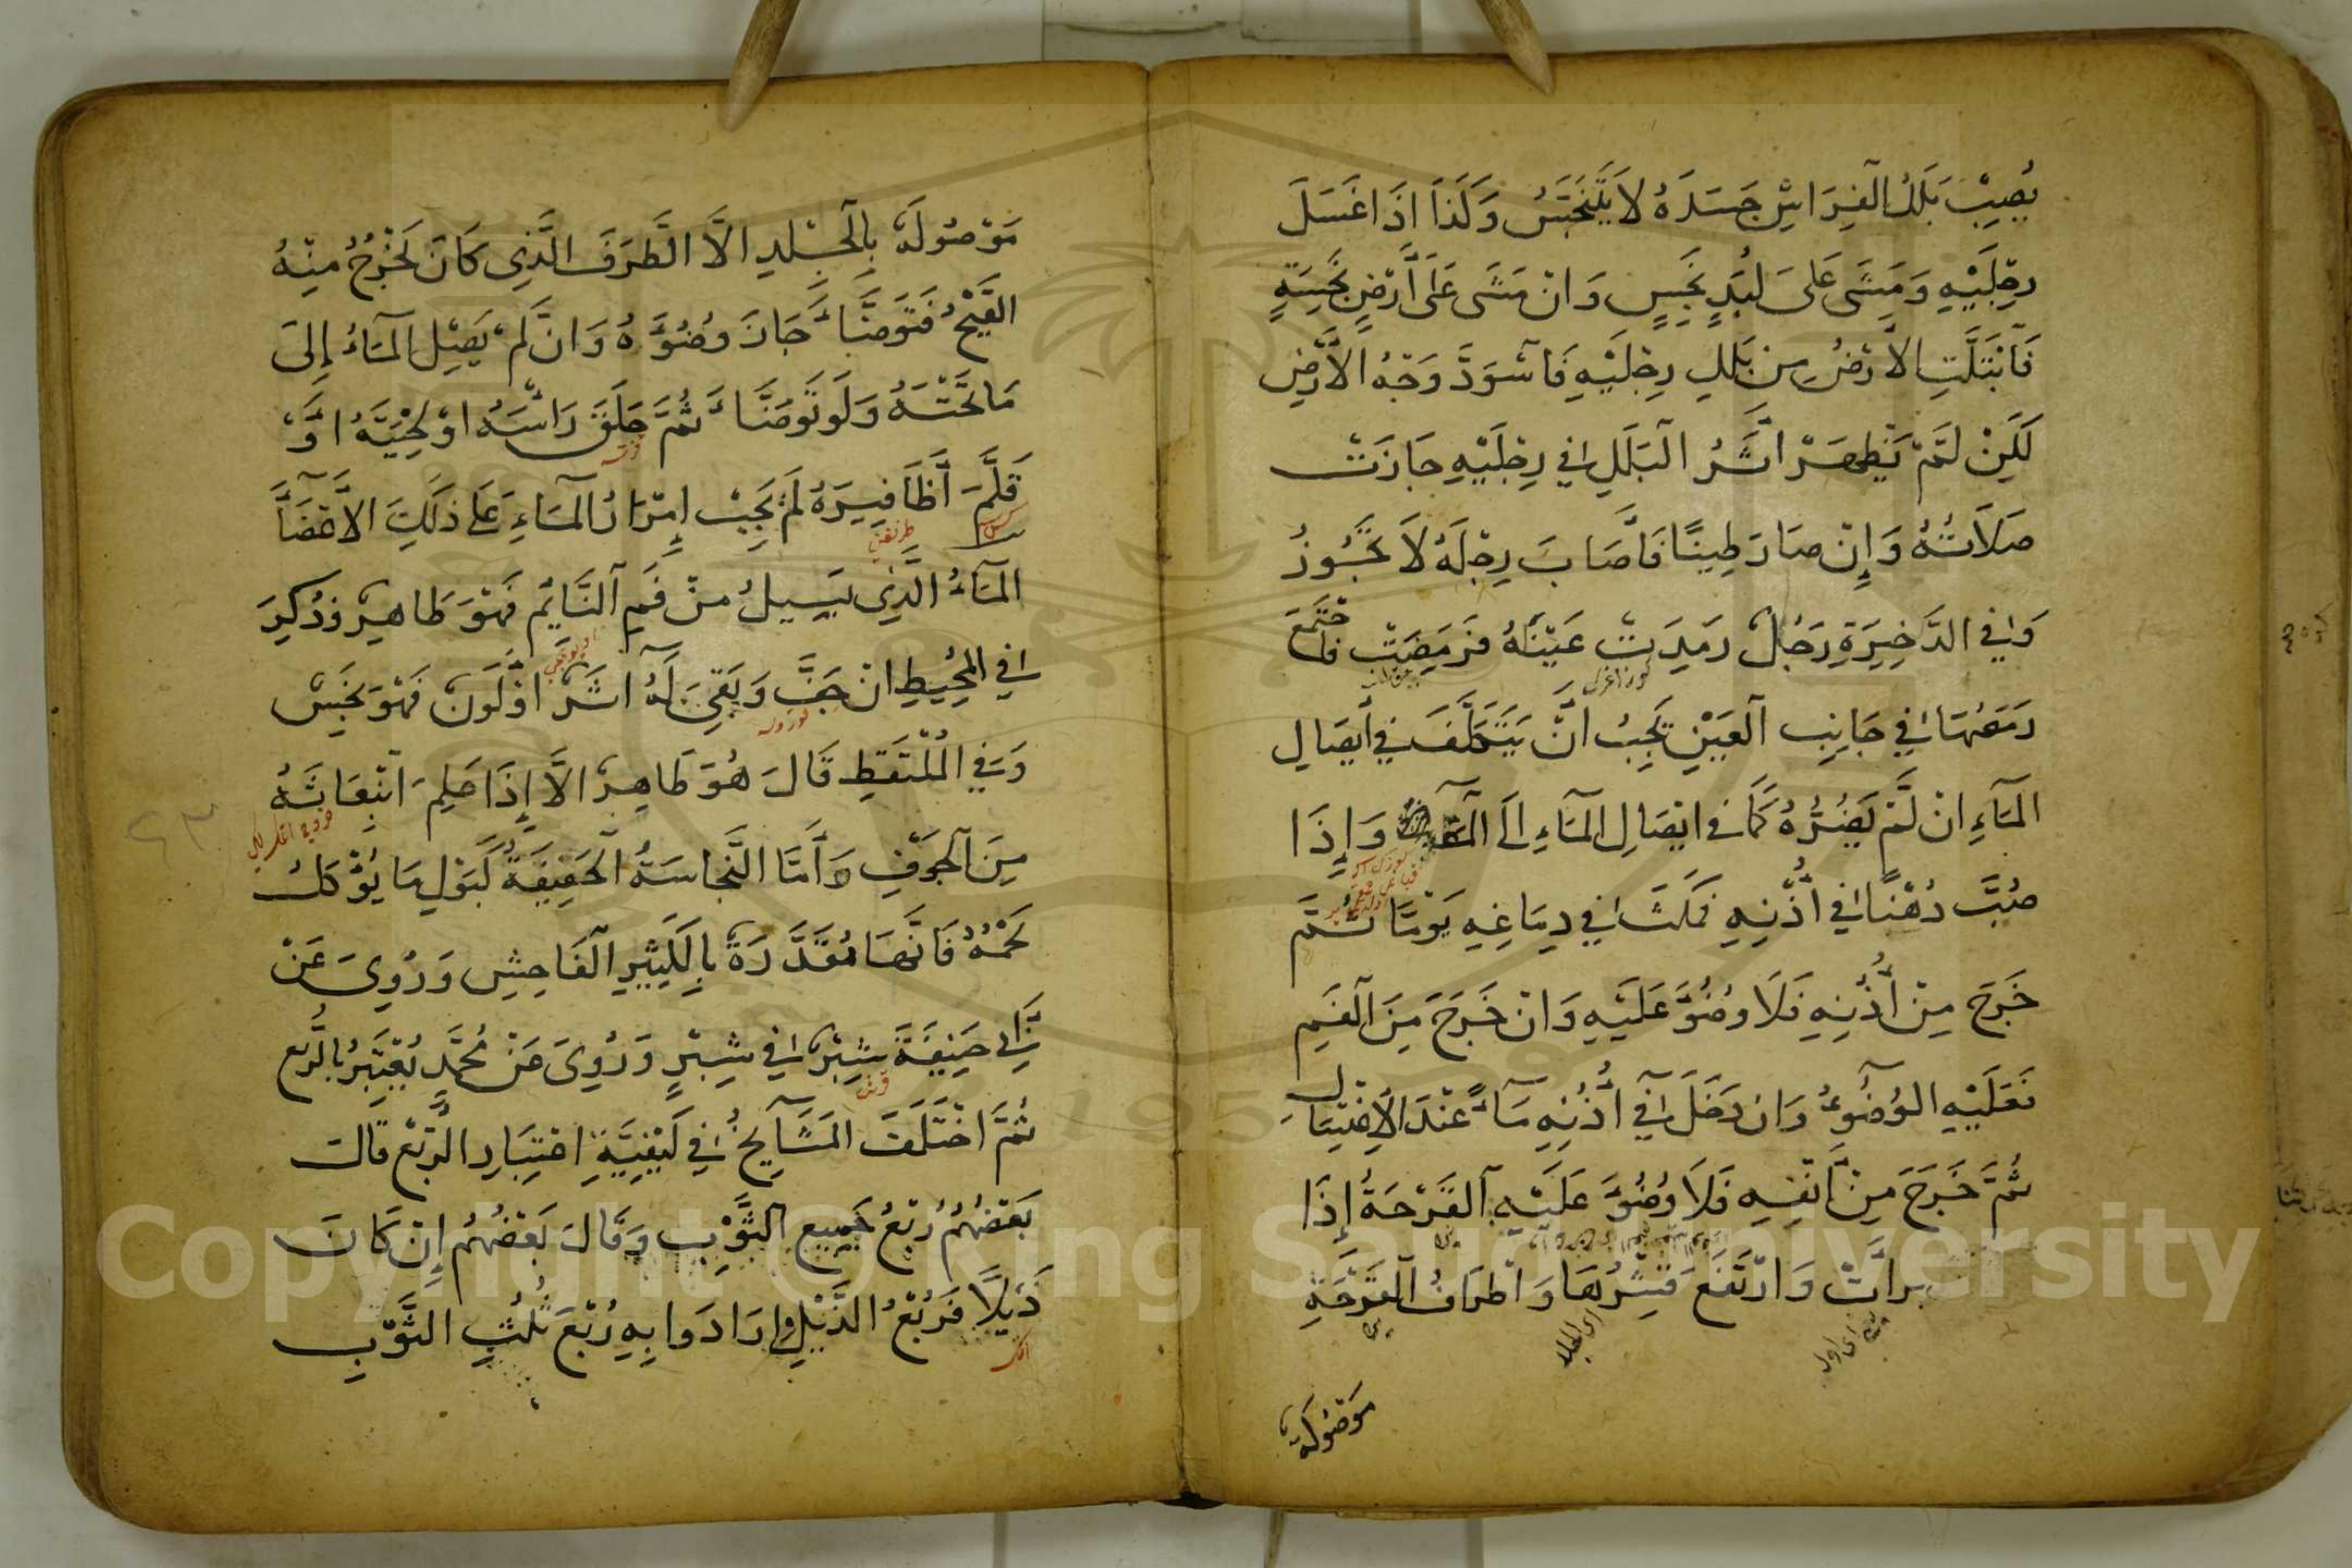 يُصِيبْ بَلَلُ الْفِرَاشِ جَسَدَهُ لَا يَتَنَجَّسُ وَكَذَا اِذَا غَسَلَ
رِجْلَيْهِ وَمَشَى عَلَى لَبَدٍ نَجِسٍ وَاِنْ مَشَى عَلَى اَرْضٍ نَجِسَةٍ
فَابْتَلَّتِ الْاَرْضُ مِنْ بَلَلِ رِجْلَيْهِ فَاسْوَدَّ وَجْهُ الْاَرْضِ
لَكِنْ لَمْ يَظْهَرْ اَثَرُ الْبَلَلِ فِي رِجْلَيْهِ جَازَتْ
صَلَاتُهُ وَإِنْ صَارَ طِينًا فَاَصَابَ رِجْلَهُ لَا تَجُوزُ
وَفِي الذَّخِيرَةِ رَجُلٌ رَمِدَتْ عَيْنُهُ فَرَمِصَتْ فَاجْتَمَعَ
رَمَصُهَا فِي جَانِبِ الْعَيْنِ يَجِبُ اَنْ يَتَكَلَّفَ فِي اِيصَالِ
الْمَاءِ اِنْ لَمْ يَضُرُّهُ كَمَا فِي ايصَالِ الْمَاءِ اِلَى وَإِذَا
صُبَّ دُهْنًا فِي أُذُنِهِ فَمَكَثَ فِي دِمَاغِهِ يَوْمًا ثُمَّ
خَرَجَ مِنْ أُذُنِهِ فَلَا وُضُوءَ عَلَيْهِ وَاِنْ خَرَجَ مِنَ الْفَمِ
فَعَلَيْهِ الْوُضُوءُ وَاِنْ دَخَلَ فِي أُذُنِهِ مَاءٌ عِنْدَ الْاِغْتِسَالِ
ثُمَّ خَرَجَ مِنْ اَنْفِهِ فَلَا وُضُوءَ عَلَيْهِ الْقَرْحَةُ إِذَا
بَرَأَتْ وَارْتَفَعَ قِشْرُهَا وَاَطْرَافُ الْقَرْحَةِ
مَوْصُولَةٌ
مَوْصُولَةٌ بِالْجِلْدِ اِلَّا الطَّرَفَ الَّذِي كَانَ يَخْرُجُ مِنْهُ
الْقَيْحُ فَتَوَضَّأَ جَازَ وُضُوءُهُ وَاِنْ لَمْ يَصِلِ الْمَاءُ إِلَى
مَا تَحْتَهُ وَلَوْ تَوَضَّأَ ثُمَّ حَلَقَ رَأْسَهُ اَوْ لِحْيَتَهُ اَوْ
قَلَّمَ أَظَافِيرَهُ لَمْ يَجِبْ إِمْرَارُ الْمَاءِ عَلَى ذَلِكَ الْاَعْضَاءِ
الْمَاءُ الَّذِي يَسِيلُ مِنْ فَمِ النَّائِمِ فَهُوَ طَاهِرٌ وَذُكِرَ
فِي الْمُحِيطِ اِنْ جَفَّ وَبَقِيَ لَهُ اَثَرٌ اَوْ لَوْنٌ فَهُوَ نَجِسٌ
وَفِي الْمُلْتَقَطِ قَالَ هُوَ طَاهِرٌ اِلَّا إِذَا عَلِمَ انْبِعَاثَهُ
مِنَ الْجَوْفِ وَاَمَّا النَّجَاسَةُ الْخَفِيفَةُ كَبَوْلِ مَا يُؤْكَلُ
لَحْمُهُ فَاِنَّهَا مُقَدَّرَةٌ بِالْكَثِيرِ الْفَاحِشِ وَرُوِيَ عَنْ
اَبِي حَنِيفَةَ شِبْرٌ فِي شِبْرٍ وَرُوِيَ عَنْ مُحَمَّدٍ يُعْتَبَرُ بِالرُّبْعِ
ثُمَّ اخْتَلَفَ الْمَشَايِخُ فِي كَيْفِيَّةِ اعْتِبَارِ الرُّبْعِ قَالَ
بَعْضُهُمْ رُبْعُ جَمِيعِ الثَّوْبِ وَقَالَ بَعْضُهُمْ إِنْ كَانَ
ذَيْلًا فَرُبْعُ الذَّيْلِ وَاِرَادَوا بِهِ رُبْعَ ثُلُثِ الثَّوْبِ
Copyright © King Saud University
195